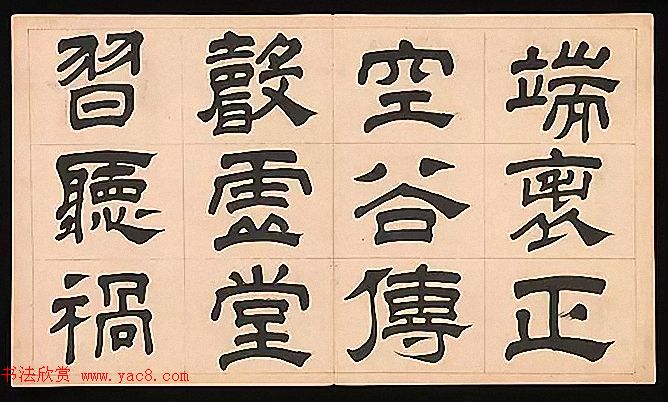 端表正
空谷傳
聲虛堂
習聽禍
书法欣赏 www.yac8.com